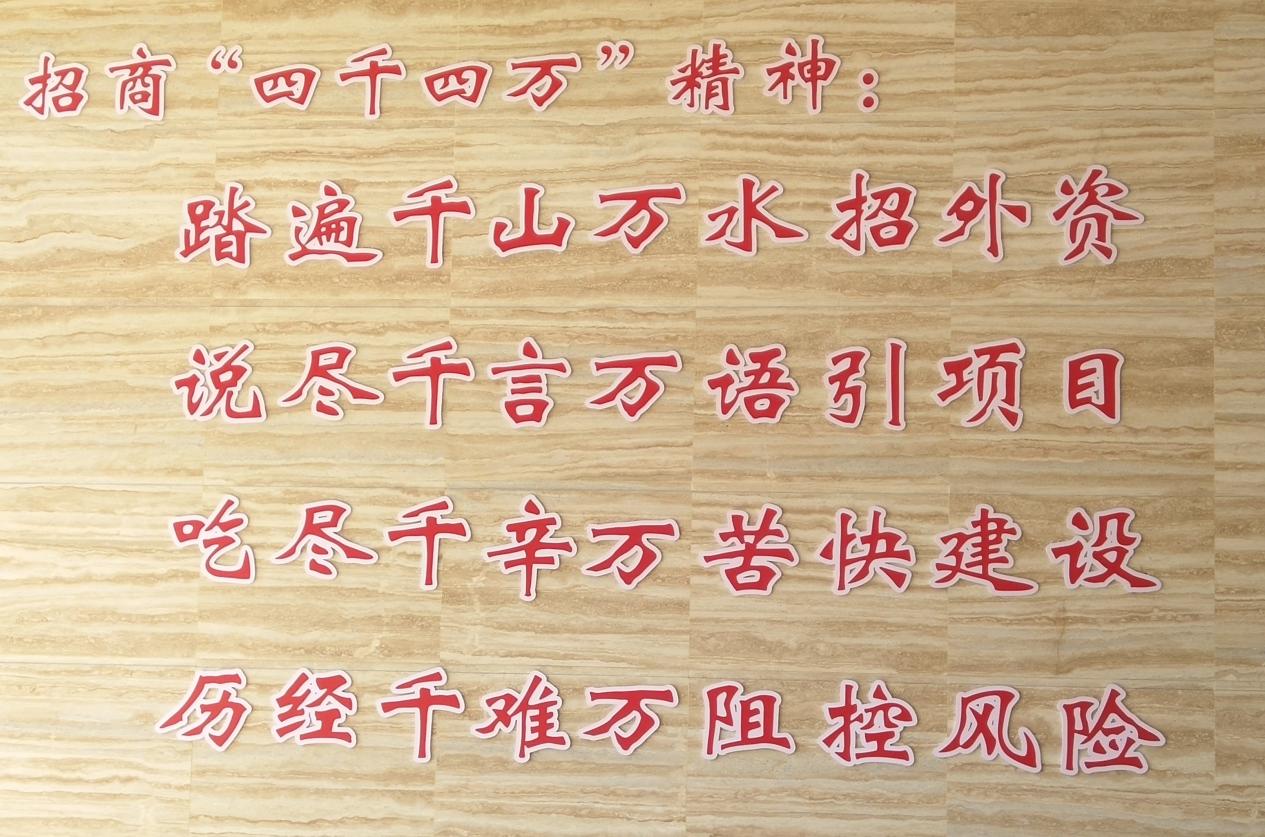 招商“四千四万”精神：
踏遍千山万水招外资
说尽千言万语引项目
吃尽千辛万苦快建设
历经千难万阻控风险